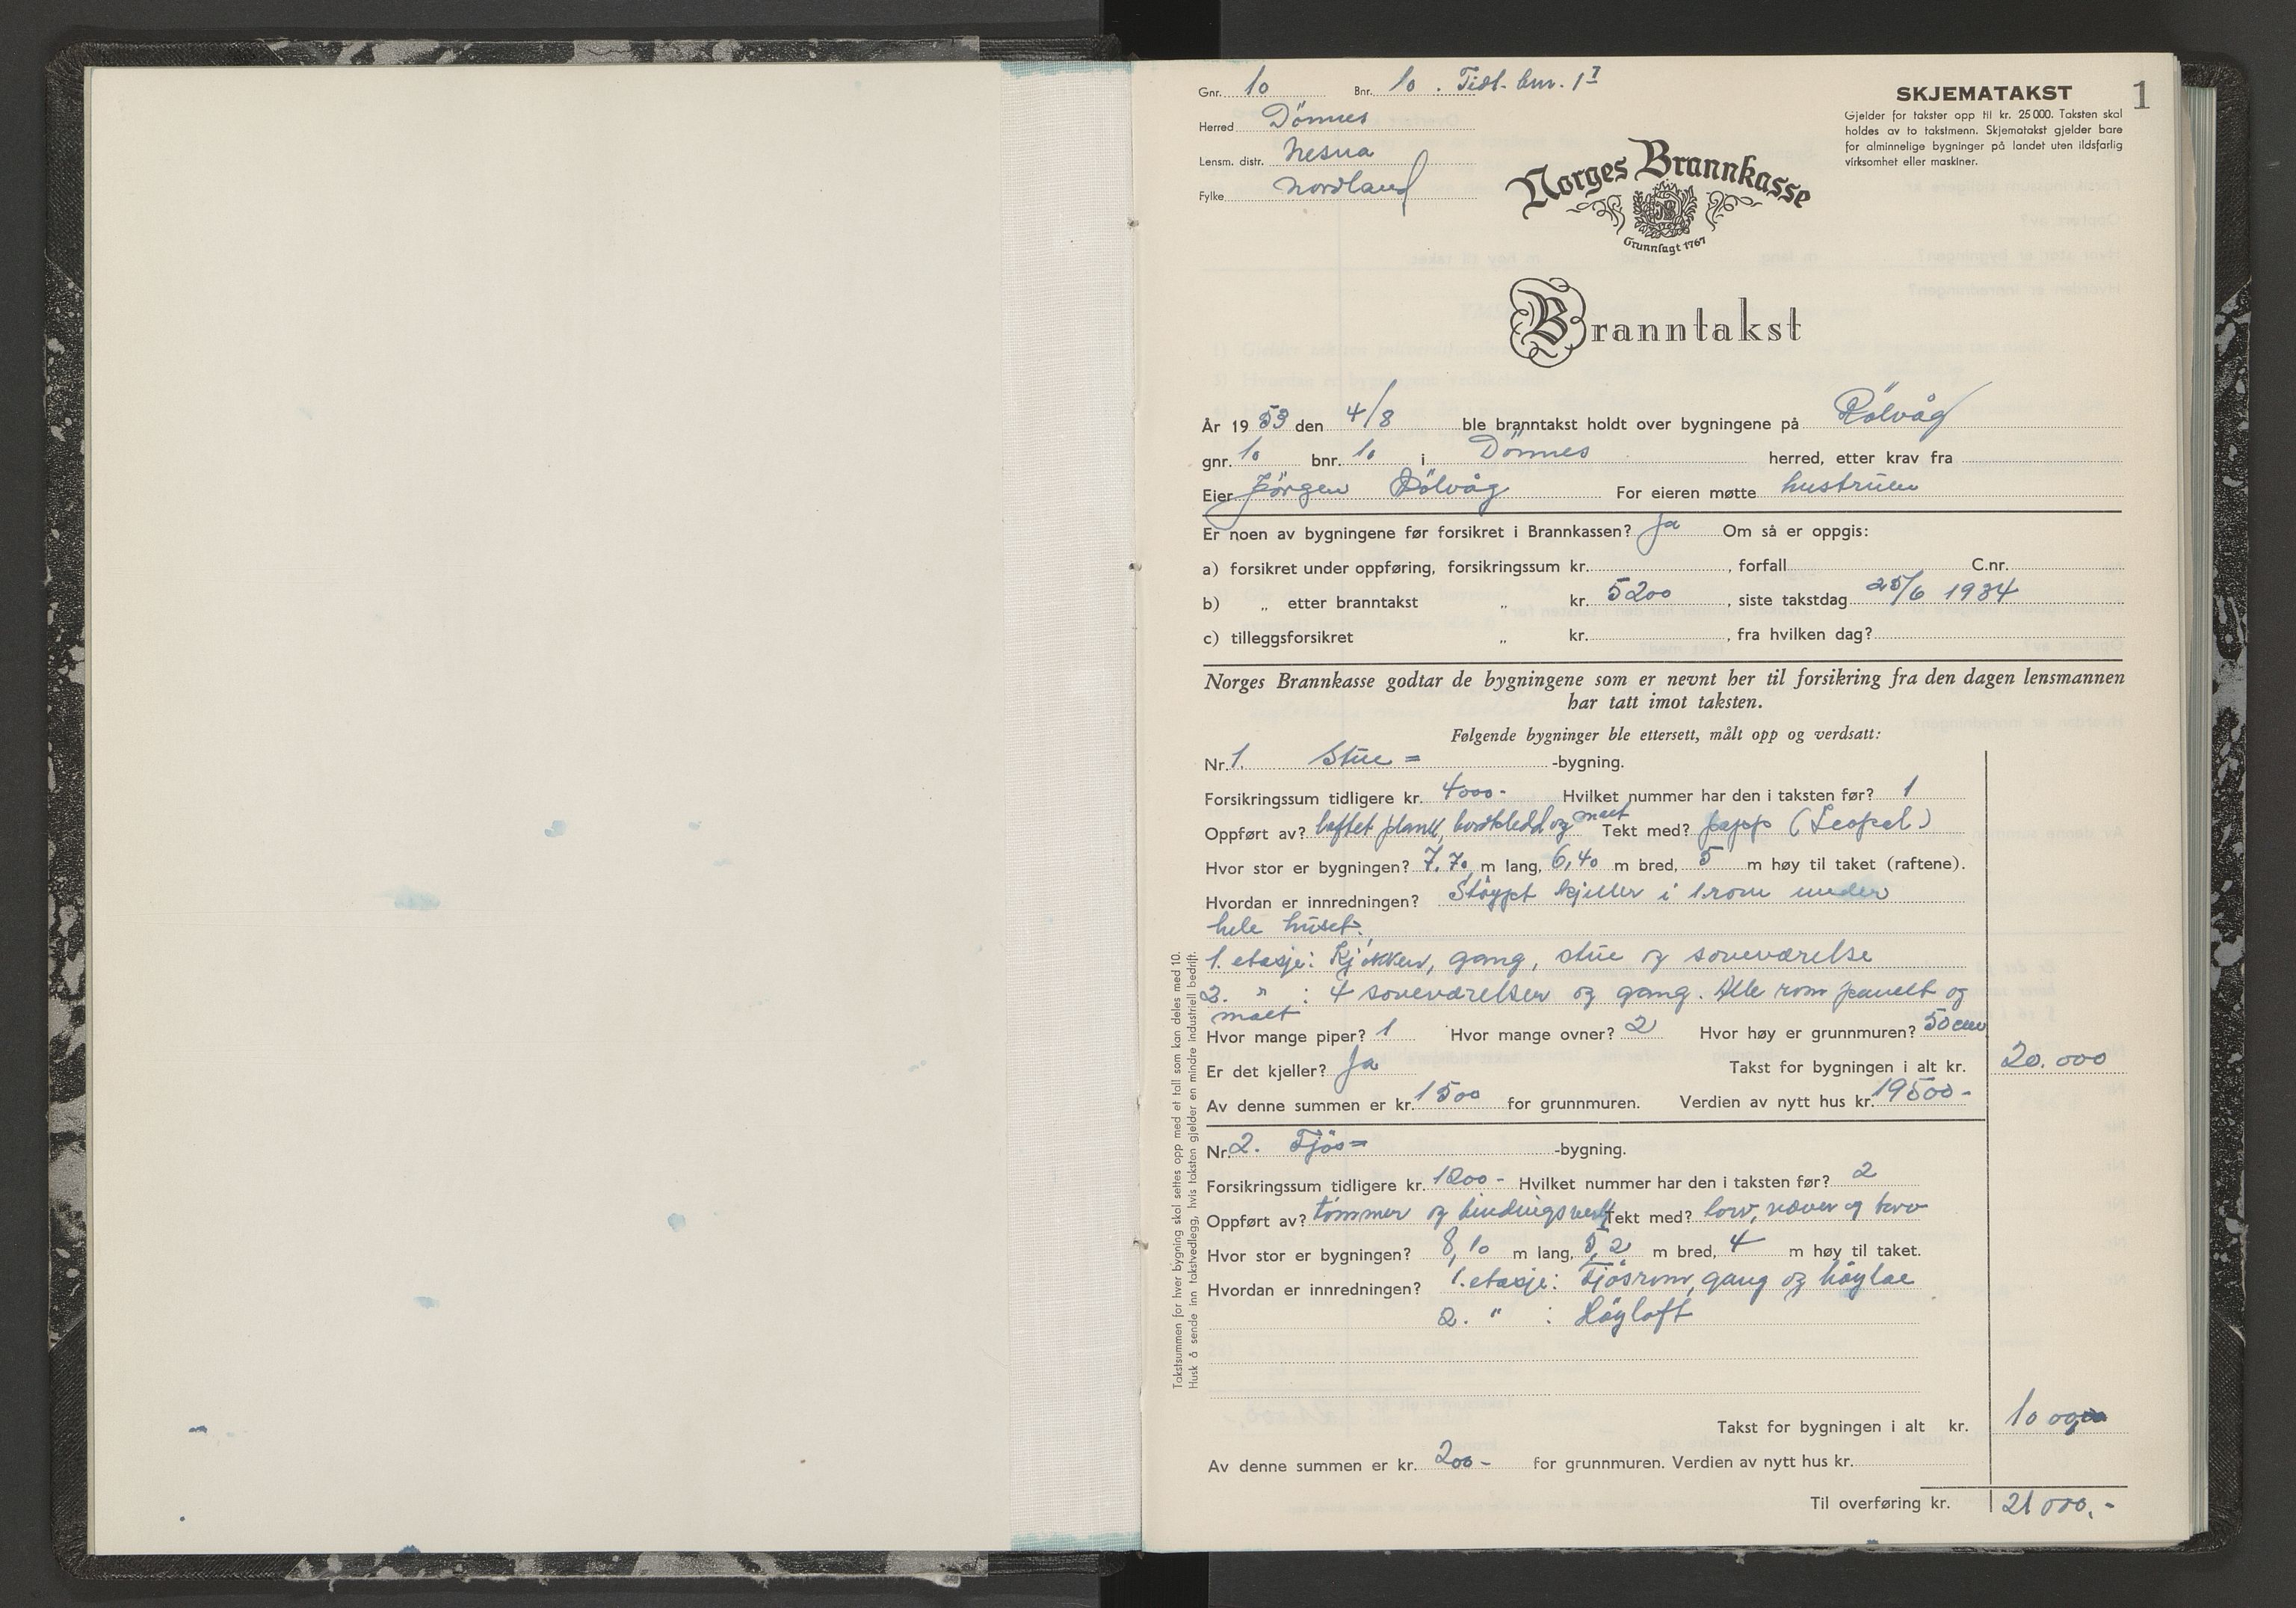 Gnr. 10 Bnr. 10. Tidl. bnr. 17
SKJEMATAKST 1
Gjelder for takster opp til kr. 25 000. Taksten skal
holdes av to takstmenn. Skjematakst gjelder bare
for alminnelige bygninger på landet uten ildsfarlig
virksomhet eller maskiner.
Herred Dönnes
Lensm. distr. Nesna
Fylke Nordland
Norges Brannkasse
Grunnlagt 1767
Branntakst
År 19 53 den 4/8 ble branntakst holdt over bygningene på Rölvåg
gnr. 10 bnr. 10 i Dönnes herred, etter krav fra
Eier Jörgen Rölvåg For eieren møtte hustruen
Er noen av bygningene før forsikret i Brannkassen? Ja Om så er oppgis:
a) forsikret under oppføring, forsikringssum kr. , forfall C.nr.
b) „ etter branntakst „ kr. 5200 , siste takstdag 25/6 1934
c) tilleggsforsikret „ kr. , fra hvilken dag?
Norges Brannkasse godtar de bygningene som er nevnt her til forsikring fra den dagen lensmannen
har tatt imot taksten.
Følgende bygninger ble ettersett, målt opp og verdsatt:
Nr. 1. Stue= -bygning.
Forsikringssum tidligere kr. 4000- Hvilket nummer har den i taksten før? 1
Oppført av? laftet plank, bordkledd og malt Tekt med? papp (Leopel)
Hvor stor er bygningen? 7,70 m lang, 6,40 m bred, 5 m høy til taket (raftene).
Hvordan er innredningen? Stöypt kjeller i 1 rom under
hele huset.
1. etasje: Kjökken, gang, stue og soveværelse
2. " : 4 soveværelser og gang. Alle rom panelt og
malt
Hvor mange piper? 1 Hvor mange ovner? 2 Hvor høy er grunnmuren? 50 cm
Er det kjeller? Ja Takst for bygningen i alt kr. 20.000
Av denne summen er kr. 1500 for grunnmuren. Verdien av nytt hus kr. 19500-
Nr. 2. Fjös= -bygning.
Forsikringssum tidligere kr. 1200- Hvilket nummer har den i taksten før? 2
Oppført av? tömmer og bindingsverk Tekt med? torv, never og torv
Hvor stor er bygningen? 8,10 m lang, 5,2 m bred, 4 m høy til taket.
Hvordan er innredningen? 1. etasje: Fjösrom, gang og höylae
2. " : Höyloft
Takst for bygningen i alt kr. 1000
Av denne summen er kr. 200- for grunnmuren. Verdien av nytt hus kr.
Til overføring kr. 21 000.-
Takstsummen for hver bygning skal settes opp med et tall som kan deles med 10.
Husk å sende inn takstvedlegg, hvis taksten gjelder en mindre industriell bedrift.